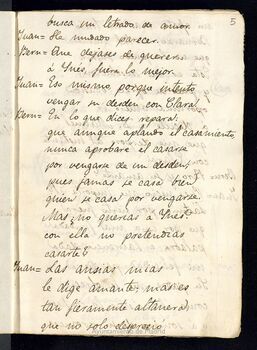 5
busca un letrado de amor.
Juan= He mudado parecer.
Bern= Que dejase de querer
à Ynés, fuera lo mejor.
Juan= Eso mismo porque intento
vengar su desden con Clara.
Bern= En lo que dices repara:
que aunque aplaudo el casamiento
nunca aprobare el casarse
por vengarse de un desden,
pues jamas se casa bien
quien se casa por vengarse.
Mas, no querias à Ynés?
con ella no pretendias
casarte?
Juan= Las ansias mias
le dige amante; mas es
tan fieramente altanera,
que no solo despreció
Ayuntamiento de Madrid